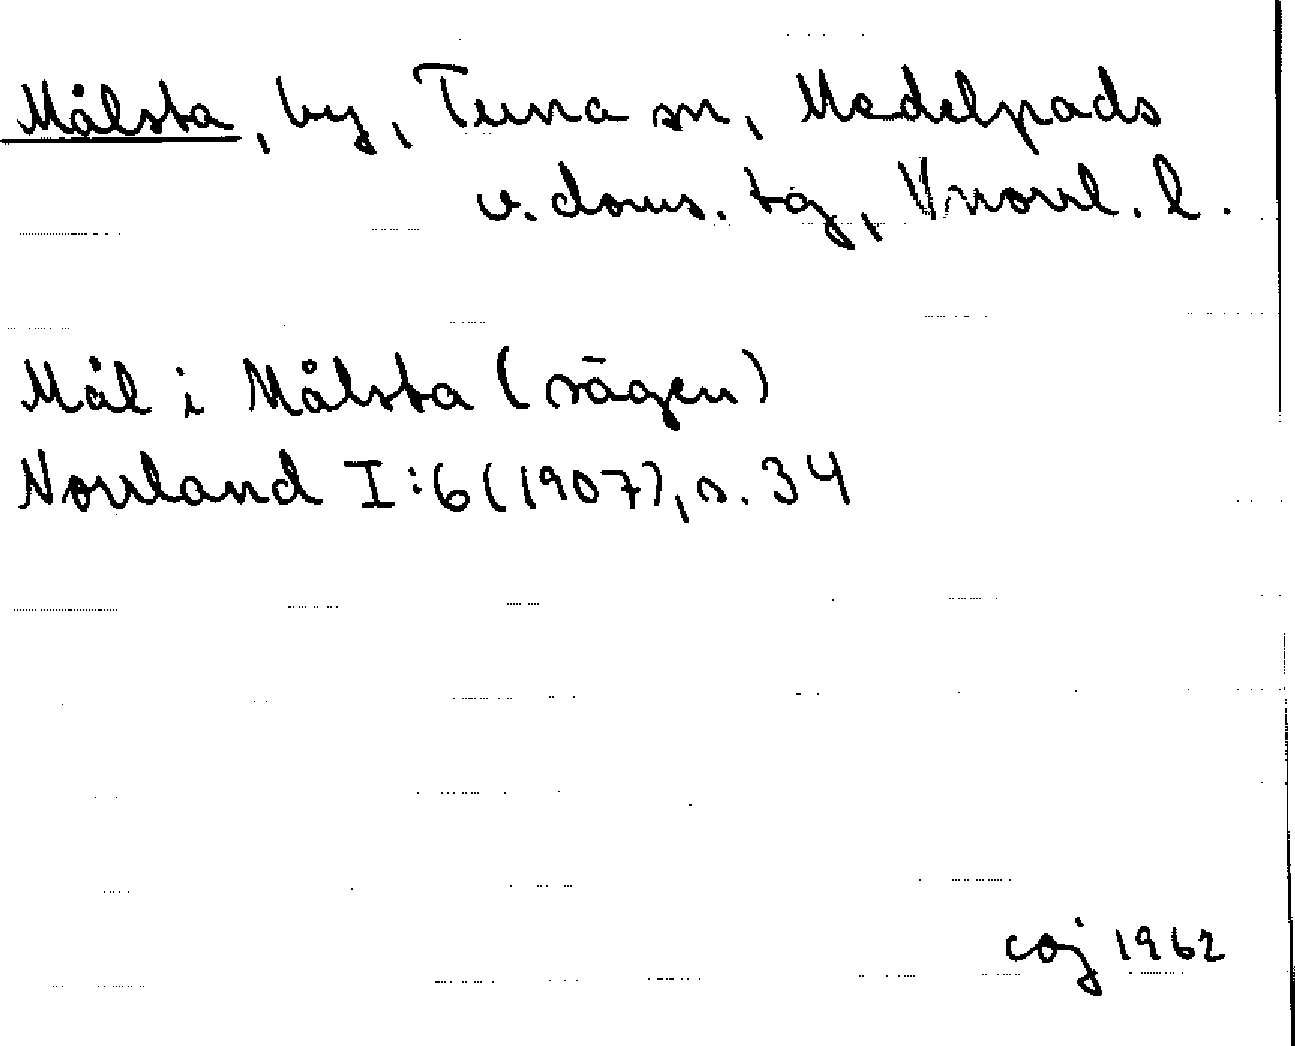 Målsta, by, Tuna sn, Medelpads
v. doms. tg, Vnorrl. l.
Mål i Målsta (sägen)
Norrland I:6 (1907), s. 34
coj 1962